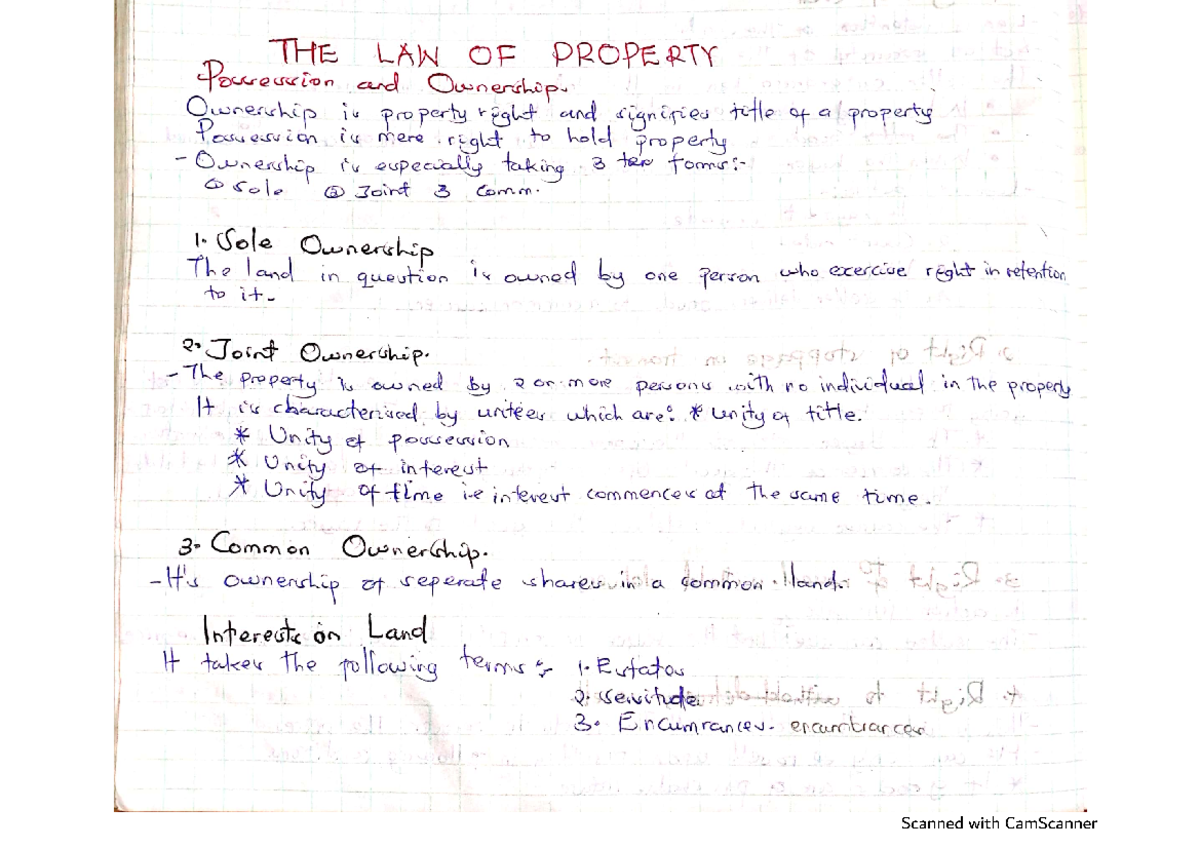 THE LAW OF PROPERTY
Possession and Ownership.
Ownership is property right and signifies title of a property
Possession is mere right to hold property
- Ownership is especially taking 3 ter forms:-
① Sole ② Joint 3 Comm.
1. Sole Ownership
The land in question is owned by one person who exercise right in retention
to it.
2. Joint Ownership.
- The property is owned by 2 or more persons with no individual in the property
It is characterised by unitees which are: * unity of title.
* Unity of possession
* Unity of interest
* Unity of time i.e interest commences at the same time.
3. Common Ownership.
- It's ownership of seperate shares in a common land.
Interests on Land
It takes the following terms:- 1. Estates
2. Servitude
3. Encumrances. encumbrances
Scanned with CamScanner